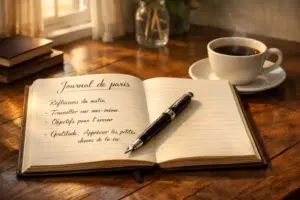 Journal de paris
Réflexions du matin,
- Travailler sur moi-même
- Objectifs pour l'avenir
- Gratitude: Apprécier les petites
choses de la vie